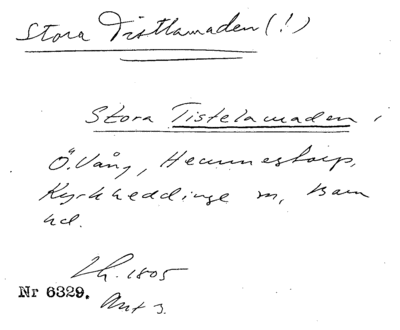 Stora Tistlamaden (!)
Stora Tistelamaden i
Ö. Vång, Hemmestorp,
Kyrkheddinge sn, Bara
hd.
Lh. 1805
Nr 6329.
Akt 3.